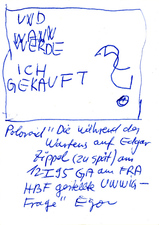 UND
WANN
WERDE
ICH
GEKAUFT
?
Polaroid "Die während des
Wartens auf Edgar
Zippel (zu spät) am
12 I 95 GA am FRA
HBF gestellte UWWG-
Frage" Egon